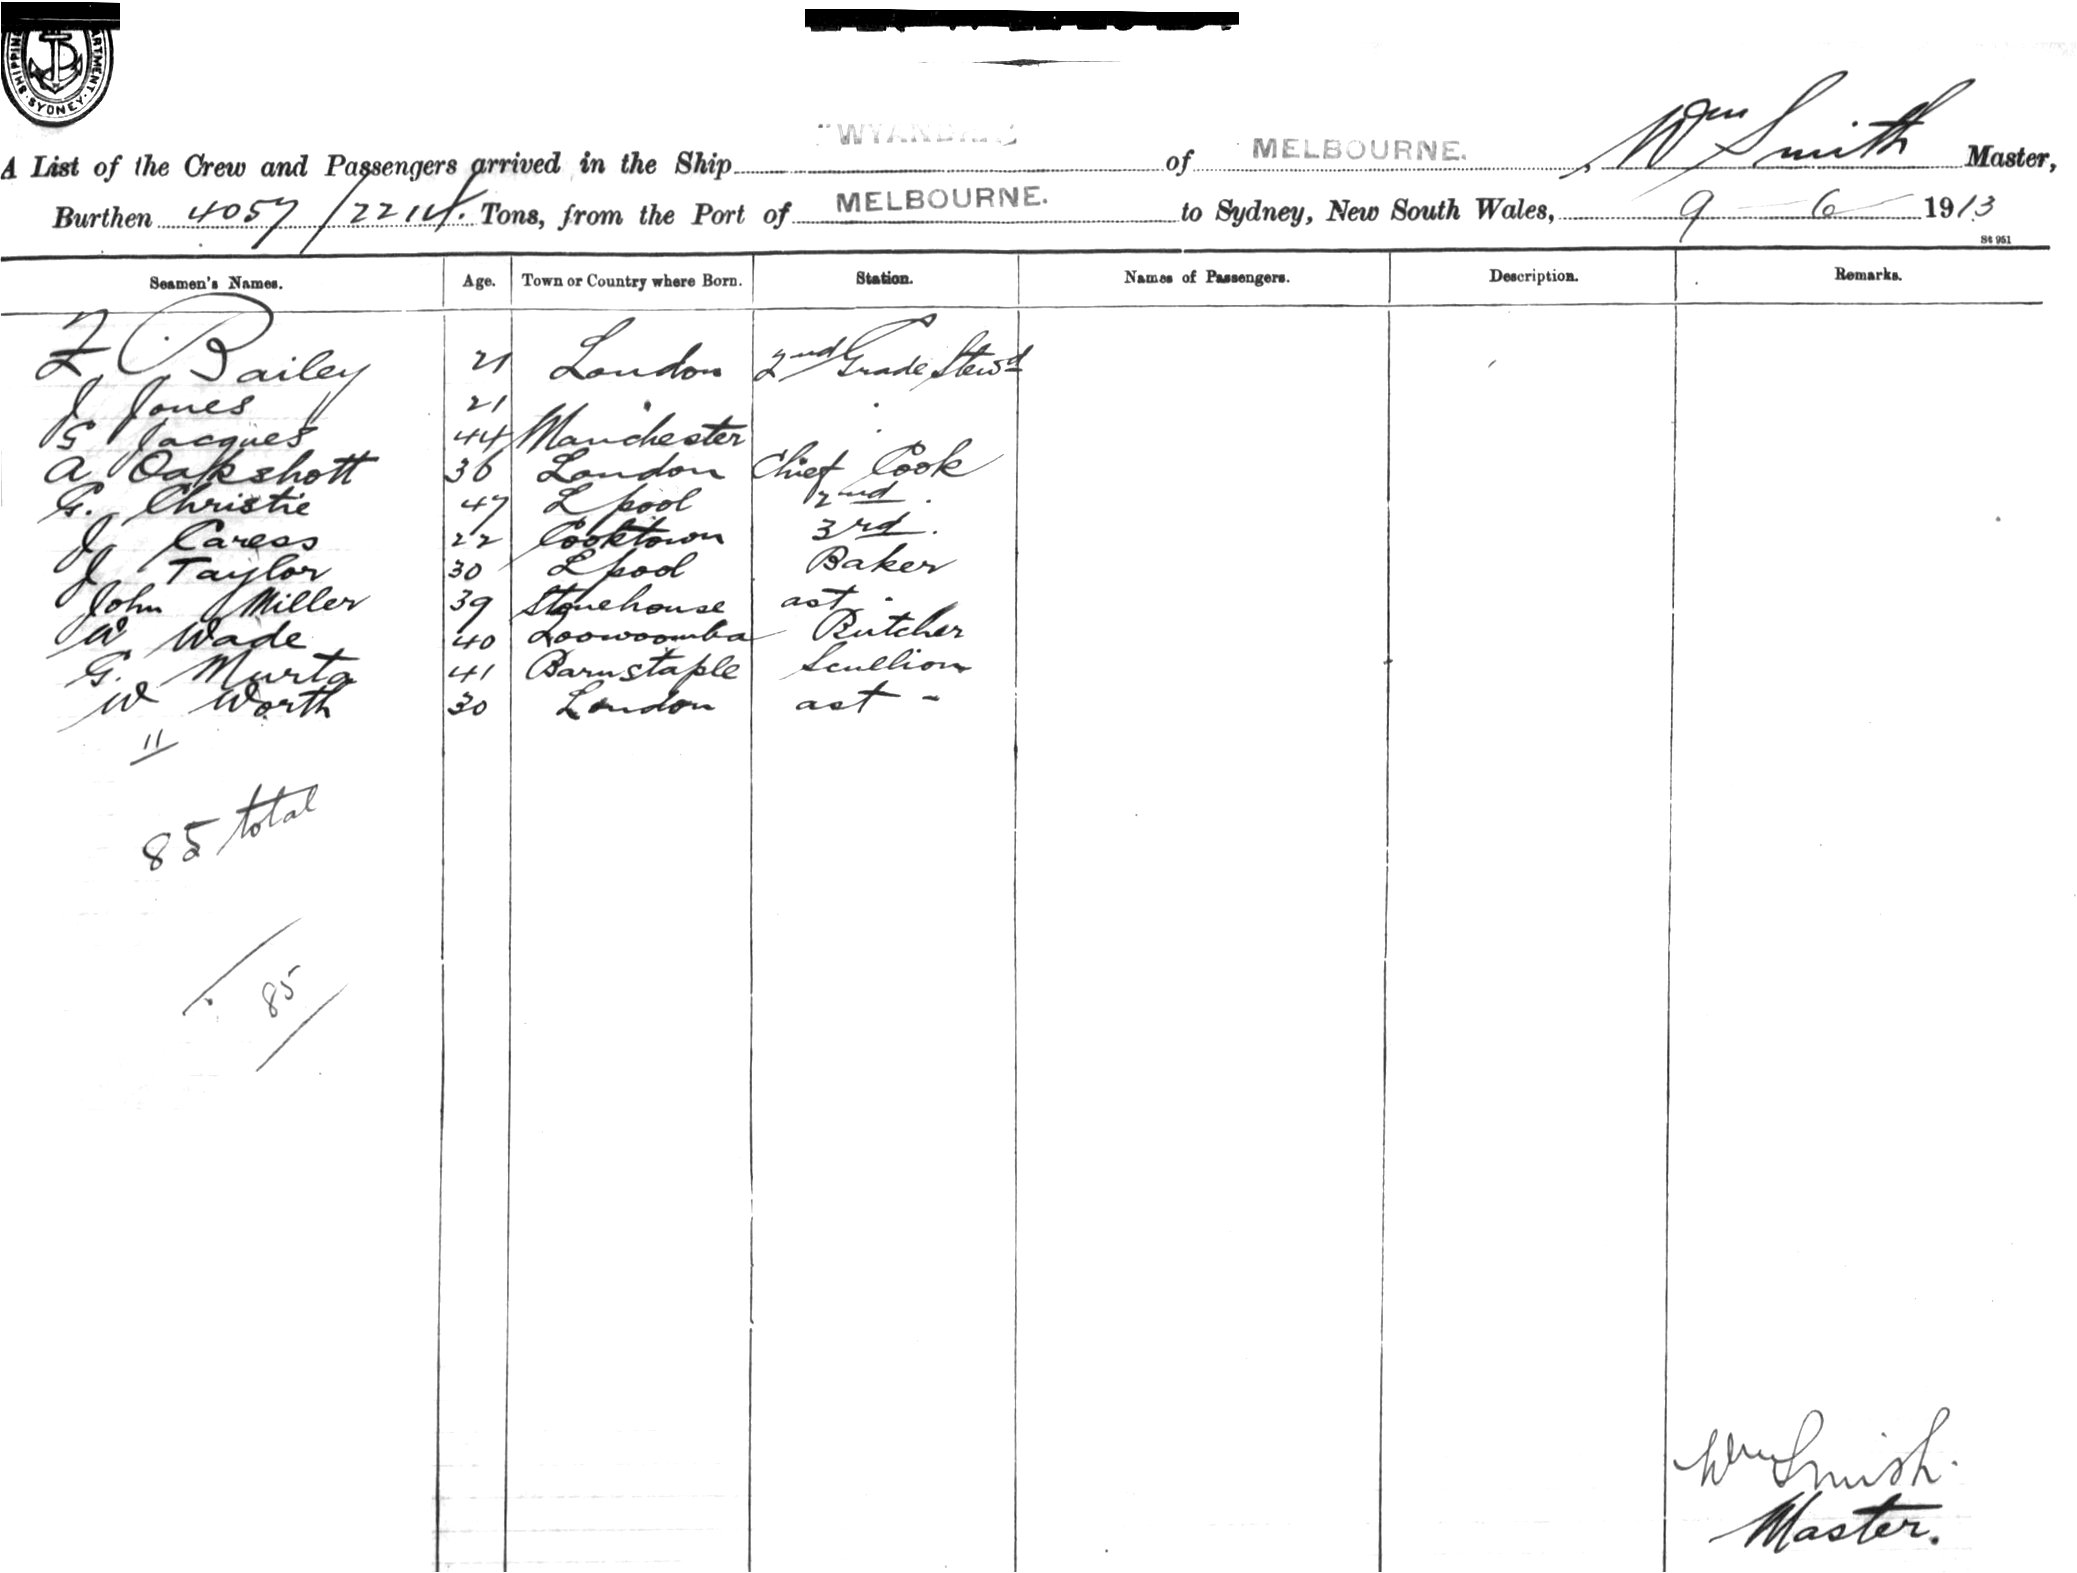 SHIPPING
ARTMENT.
SYDNEY
"WYANDRA"
A List of the Crew and Passengers arrived in the Ship of MELBOURNE. , Wm Smith Master,
Burthen 4057/2214. Tons, from the Port of MELBOURNE. to Sydney, New South Wales, 9 - 6 - 1913
St 951
Seamen's Names. Age. Town or Country where Born. Station. Names of Passengers. Description. Remarks.
F Bailey 21 London 2nd Grade Stewd
J Jones 21 " "
G Jacques 44 Manchester "
A Oakshott 36 London Chief Cook
G. Christie 47 L'pool 2nd "
J Caress 22 Cooktown 3rd "
J Taylor 30 L'pool Baker
John Miller 39 Stonehouse ast "
W Wade 40 Toowoomba Butcher
G. Murta 41 Barnstaple Scullion
W Worth 30 London ast -
11
85 total
85
Wm Smith.
Master.